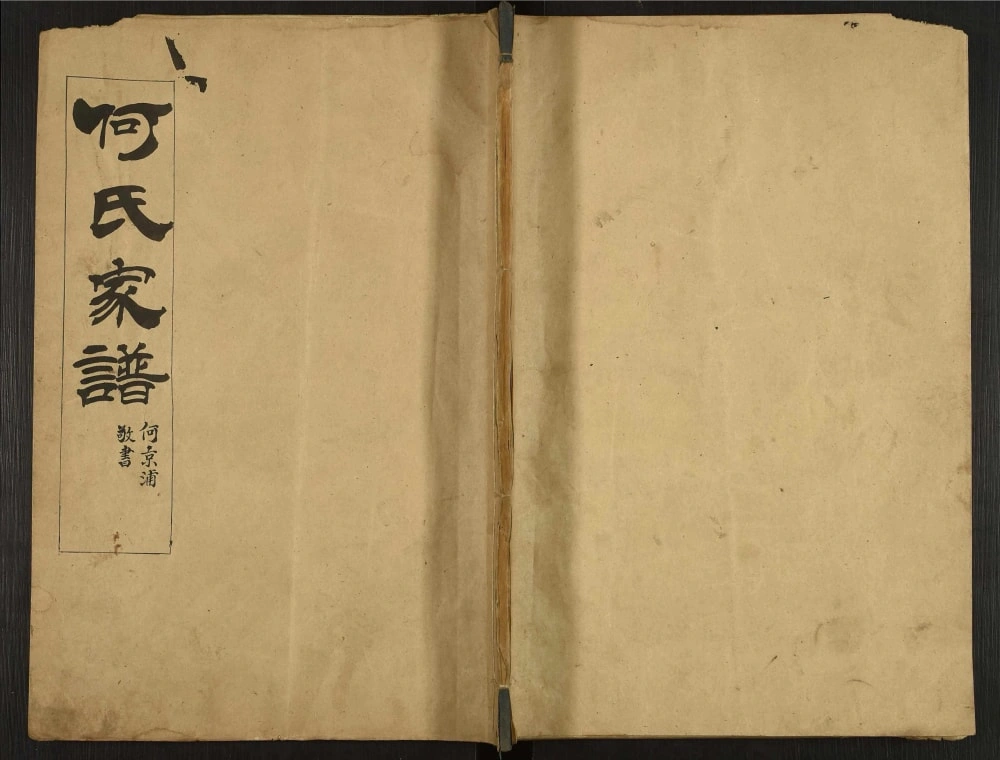 何氏家譜
何京浦
敬書